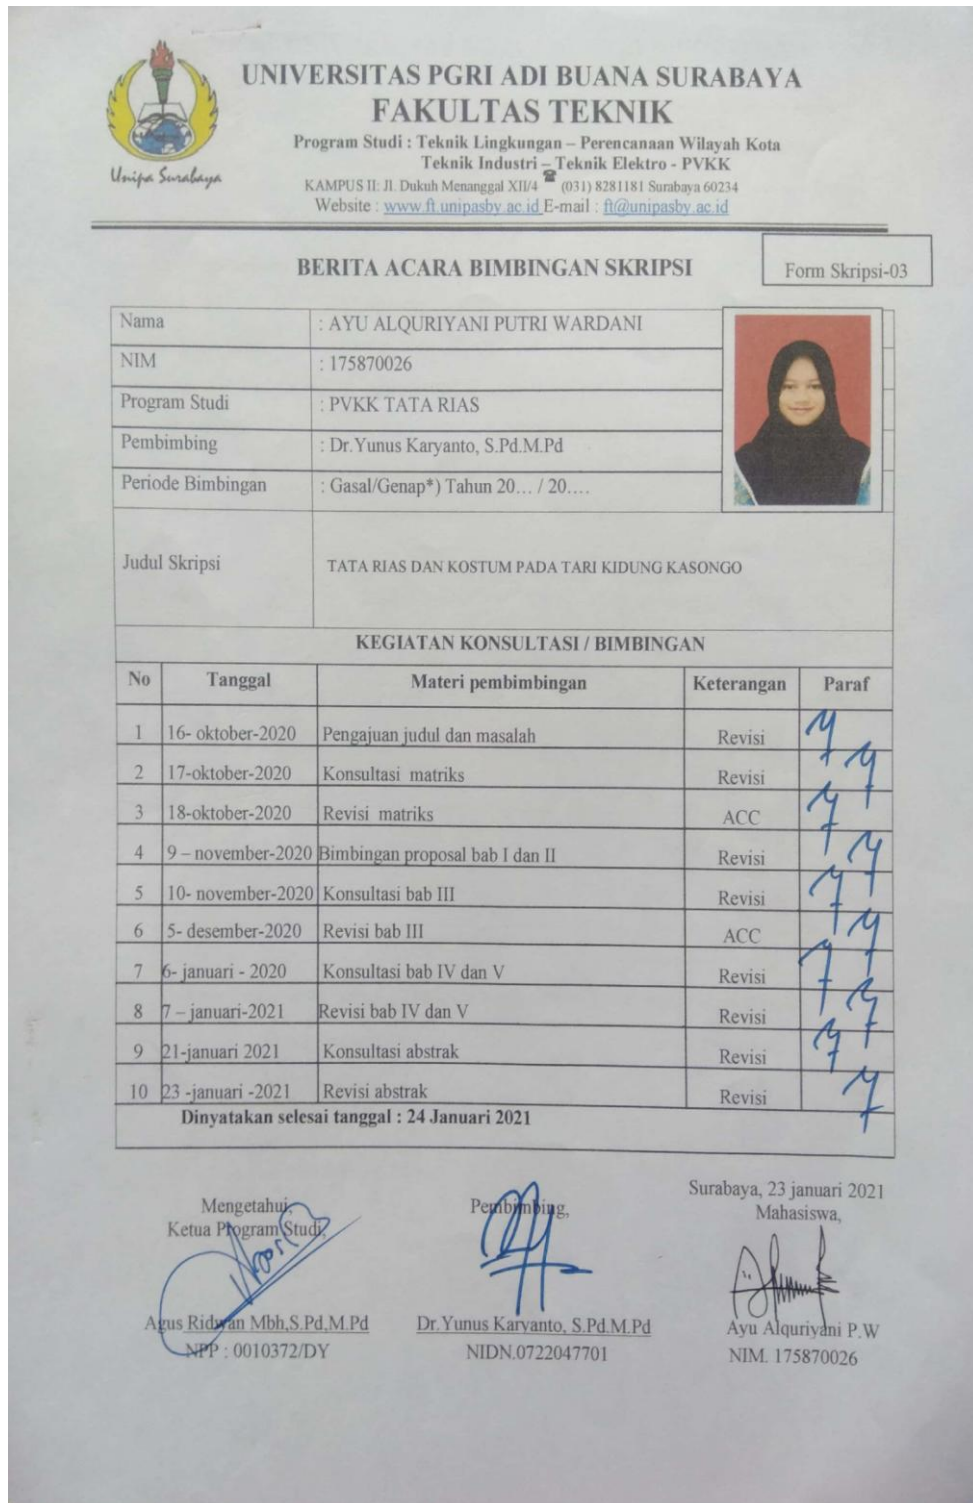 UNIVERSITAS PGRI ADI BUANA SURABAYA
FAKULTAS TEKNIK
Program Studi : Teknik Lingkungan – Perencanaan Wilayah Kota
Teknik Industri – Teknik Elektro - PVKK
KAMPUS II: Jl. Dukuh Menanggal XII/4 ☎ (031) 8281181 Surabaya 60234
Website : www.ft.unipasby.ac.id E-mail : ft@unipasby.ac.id
Unipa Surabaya
BERITA ACARA BIMBINGAN SKRIPSI
Form Skripsi-03
Nama : AYU ALQURIYANI PUTRI WARDANI
NIM : 175870026
Program Studi : PVKK TATA RIAS
Pembimbing : Dr.Yunus Karyanto, S.Pd.M.Pd
Periode Bimbingan : Gasal/Genap*) Tahun 20... / 20....
Judul Skripsi TATA RIAS DAN KOSTUM PADA TARI KIDUNG KASONGO
KEGIATAN KONSULTASI / BIMBINGAN
No Tanggal Materi pembimbingan Keterangan Paraf
1 16- oktober-2020 Pengajuan judul dan masalah Revisi
2 17-oktober-2020 Konsultasi matriks Revisi
3 18-oktober-2020 Revisi matriks ACC
4 9 – november-2020 Bimbingan proposal bab I dan II Revisi
5 10- november-2020 Konsultasi bab III Revisi
6 5- desember-2020 Revisi bab III ACC
7 6- januari - 2020 Konsultasi bab IV dan V Revisi
8 7 – januari-2021 Revisi bab IV dan V Revisi
9 21-januari 2021 Konsultasi abstrak Revisi
10 23 -januari -2021 Revisi abstrak Revisi
Dinyatakan selesai tanggal : 24 Januari 2021
Surabaya, 23 januari 2021
Mengetahui, Pembimbing, Mahasiswa,
Ketua Program Studi,
Agus Ridwan Mbh,S.Pd,M.Pd Dr.Yunus Karyanto, S.Pd.M.Pd Ayu Alquriyani P.W
NPP : 0010372/DY NIDN.0722047701 NIM. 175870026